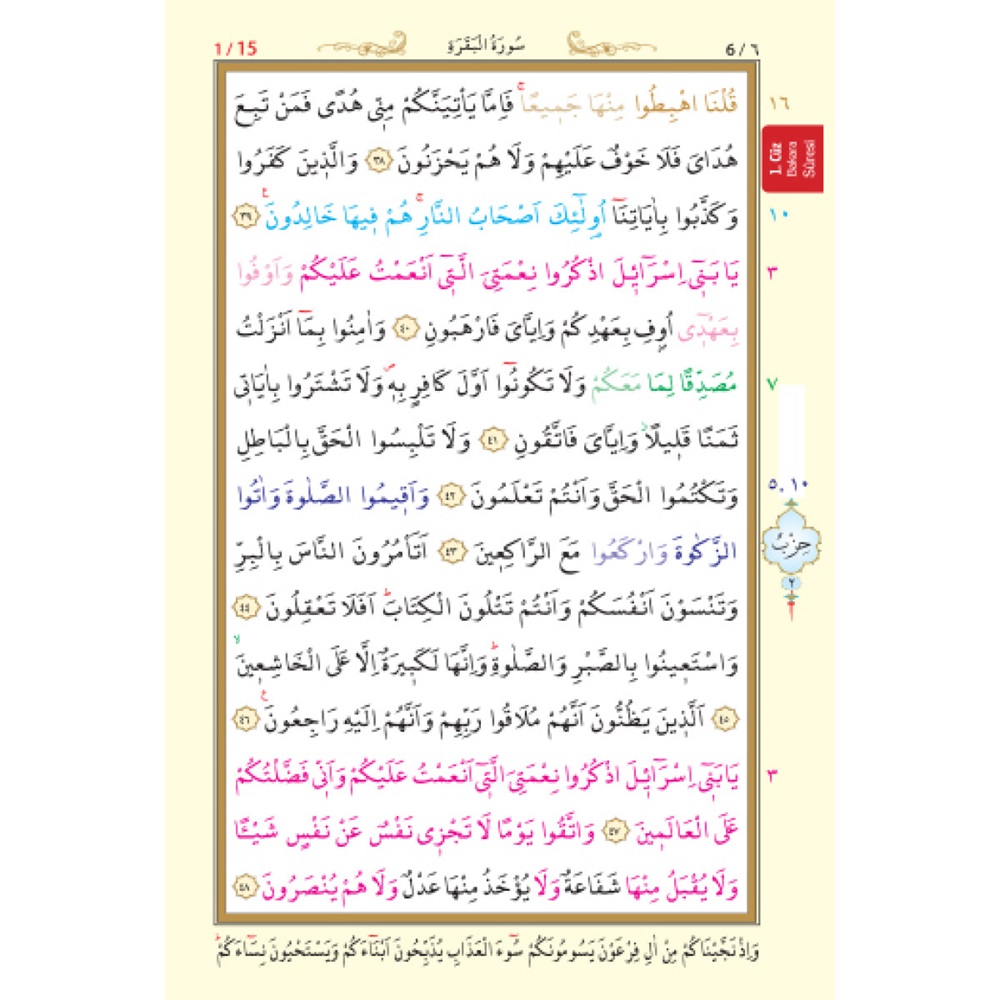 1 / 15 سُورَةُ الْبَقَرَةِ 6 / ٦
قُلْنَا اهْبِطُوا مِنْهَا جَم۪يعًاۚ فَاِمَّا يَأْتِيَنَّكُمْ مِنّ۪ي هُدًى فَمَنْ تَبِعَ
١٦
1. Cüz
Bakara
Sûresi
هُدَايَ فَلَا خَوْفٌ عَلَيْهِمْ وَلَا هُمْ يَحْزَنُونَ ﴿٣٨﴾ وَالَّذ۪ينَ كَفَرُوا
وَكَذَّبُوا بِاٰيَاتِنَٓا اُو۬لٰٓئِكَ اَصْحَابُ النَّارِۚ هُمْ ف۪يهَا خَالِدُونَ۟ ﴿٣٩﴾
١٠
يَا بَن۪ٓي اِسْرَٓائ۪لَ اذْكُرُوا نِعْمَتِيَ الَّت۪ٓي اَنْعَمْتُ عَلَيْكُمْ وَاَوْفُوا
٣
بِعَهْد۪ٓي اُو۫فِ بِعَهْدِكُمْ وَاِيَّايَ فَارْهَبُونِ ﴿٤٠﴾ وَاٰمِنُوا بِمَٓا اَنْزَلْتُ
مُصَدِّقًا لِمَا مَعَكُمْ وَلَا تَكُونُٓوا اَوَّلَ كَافِرٍ بِه۪ۖ وَلَا تَشْتَرُوا بِاٰيَات۪ي
٧
ثَمَنًا قَل۪يلًاۘ وَاِيَّايَ فَاتَّقُونِ ﴿٤١﴾ وَلَا تَلْبِسُوا الْحَقَّ بِالْبَاطِلِ
وَتَكْتُمُوا الْحَقَّ وَاَنْتُمْ تَعْلَمُونَ ﴿٤٢﴾ وَاَق۪يمُوا الصَّلٰوةَ وَاٰتُوا
٥،١٠
الزَّكٰوةَ وَارْكَعُوا مَعَ الرَّاكِع۪ينَ ﴿٤٣﴾ اَتَأْمُرُونَ النَّاسَ بِالْبِرِّ
حِزْبٌ
٢
وَتَنْسَوْنَ اَنْفُسَكُمْ وَاَنْتُمْ تَتْلُونَ الْكِتَابَۜ اَفَلَا تَعْقِلُونَ ﴿٤٤﴾
وَاسْتَع۪ينُوا بِالصَّبْرِ وَالصَّلٰوةِۜ وَاِنَّهَا لَكَب۪يرَةٌ اِلَّا عَلَى الْخَاشِع۪ينَۙ
﴿٤٥﴾ اَلَّذ۪ينَ يَظُنُّونَ اَنَّهُمْ مُلَاقُوا رَبِّهِمْ وَاَنَّهُمْ اِلَيْهِ رَاجِعُونَ۟ ﴿٤٦﴾
يَا بَن۪ٓي اِسْرَٓائ۪لَ اذْكُرُوا نِعْمَتِيَ الَّت۪ٓي اَنْعَمْتُ عَلَيْكُمْ وَاَنّ۪ي فَضَّلْتُكُمْ
٣
عَلَى الْعَالَم۪ينَ ﴿٤٧﴾ وَاتَّقُوا يَوْمًا لَا تَجْز۪ي نَفْسٌ عَنْ نَفْسٍ شَيْـًٔا
وَلَا يُقْبَلُ مِنْهَا شَفَاعَةٌ وَلَا يُؤْخَذُ مِنْهَا عَدْلٌ وَلَا هُمْ يُنْصَرُونَ ﴿٤٨﴾
وَاِذْ نَجَّيْنَاكُمْ مِنْ اٰلِ فِرْعَوْنَ يَسُومُونَكُمْ سُٓوءَ الْعَذَابِ يُذَبِّحُونَ اَبْنَٓاءَكُمْ وَيَسْتَحْيُونَ نِسَٓاءَكُمْۜ